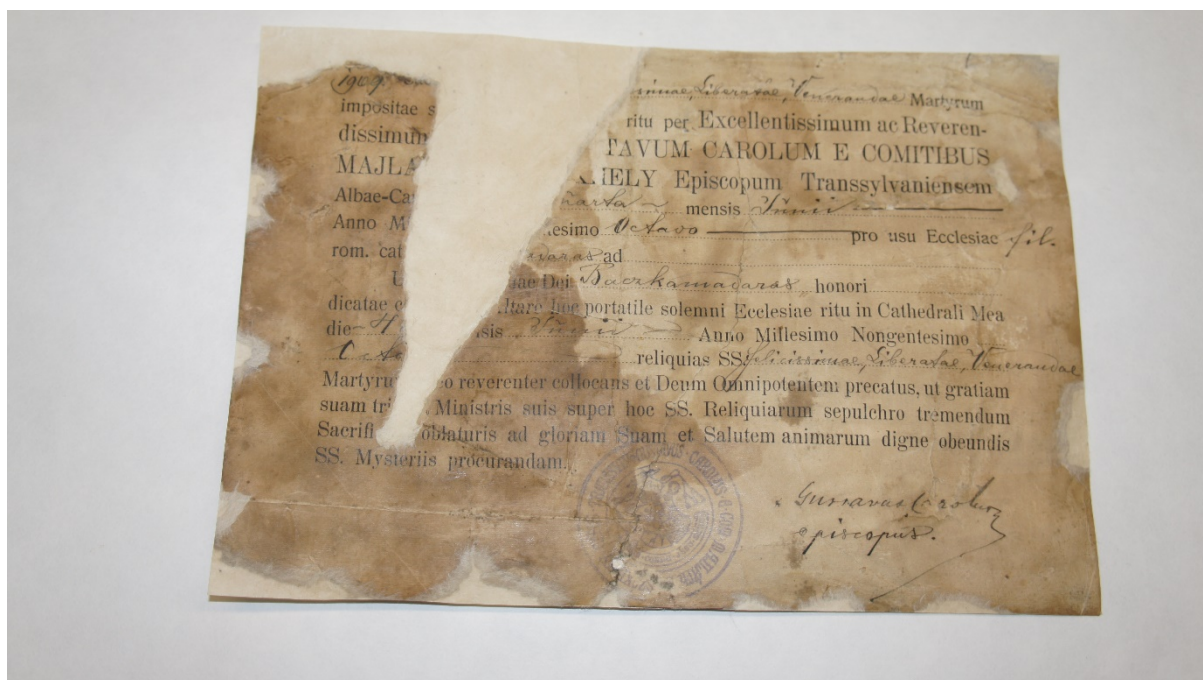 1909. Liberatae, Venerandae Martyrum
impositae s ritu per Excellentissimum ac Reveren-
dissimum TAVUM CAROLUM E COMITIBUS
MAJLÁ HELY Episcopum Transsylvaniensem
Albae-Ca uarta mensis Junii
Anno M esimo Octavo pro usu Ecclesiae fil.
rom. cat ad
U ae Dei Baczkamadaras honori
dicatae e Altare hoc portatile solemni Ecclesiae ritu in Cathedrali Mea
die 4 sis Junii Anno Millesimo Nongentesimo
Octa reliquias SS. felicissimae, Liberatae, Venerandae
Martyru eo reverenter collocans et Deum Omnipotentem precatus, ut gratiam
suam tri Ministris suis super hoc SS. Reliquiarum sepulchro tremendum
Sacrifi oblaturis ad gloriam Suam et Salutem animarum digne obeundis
SS. Mysteriis procurandam.
Gustavus Carolus
episcopus.